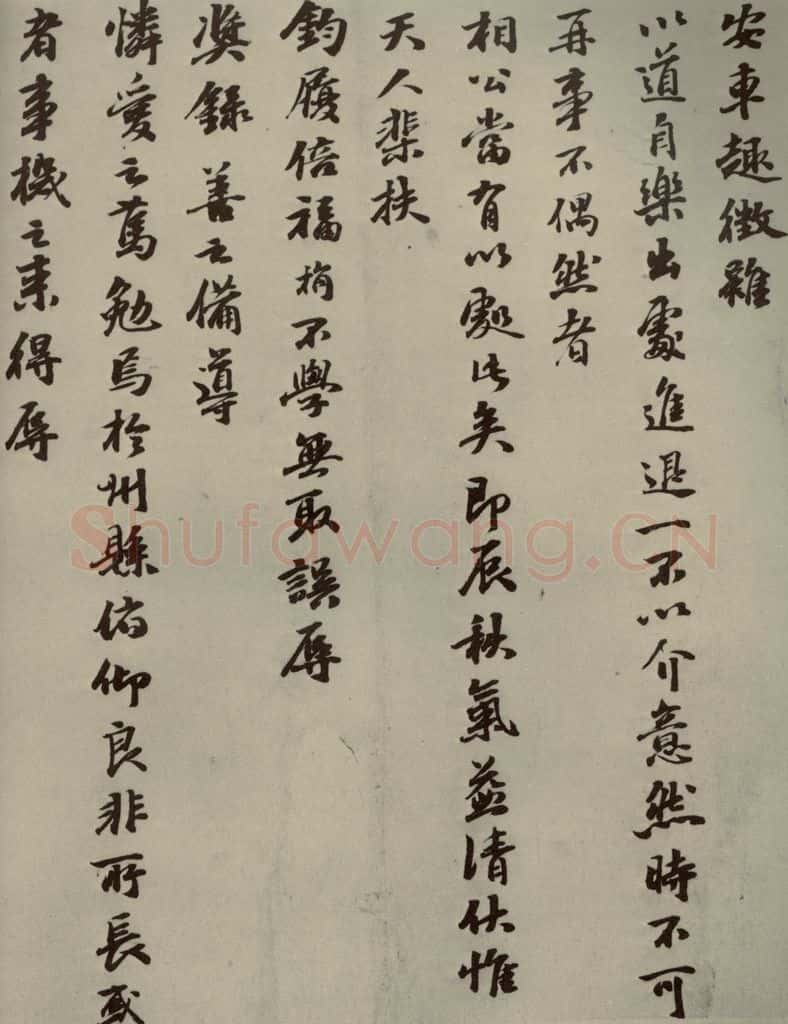 安車趣徵雖
以道自樂出處進退一不以介意然時不可
再事不偶然者
相公當有以處此矣即辰秋氣益清伏惟
天人棐扶
鈞履倍福 不學無取誤辱
獎錄善之備導
憐愛之篤勉焉於州縣俯仰良非所長或
者事機之來得辱
Shufawang.CN